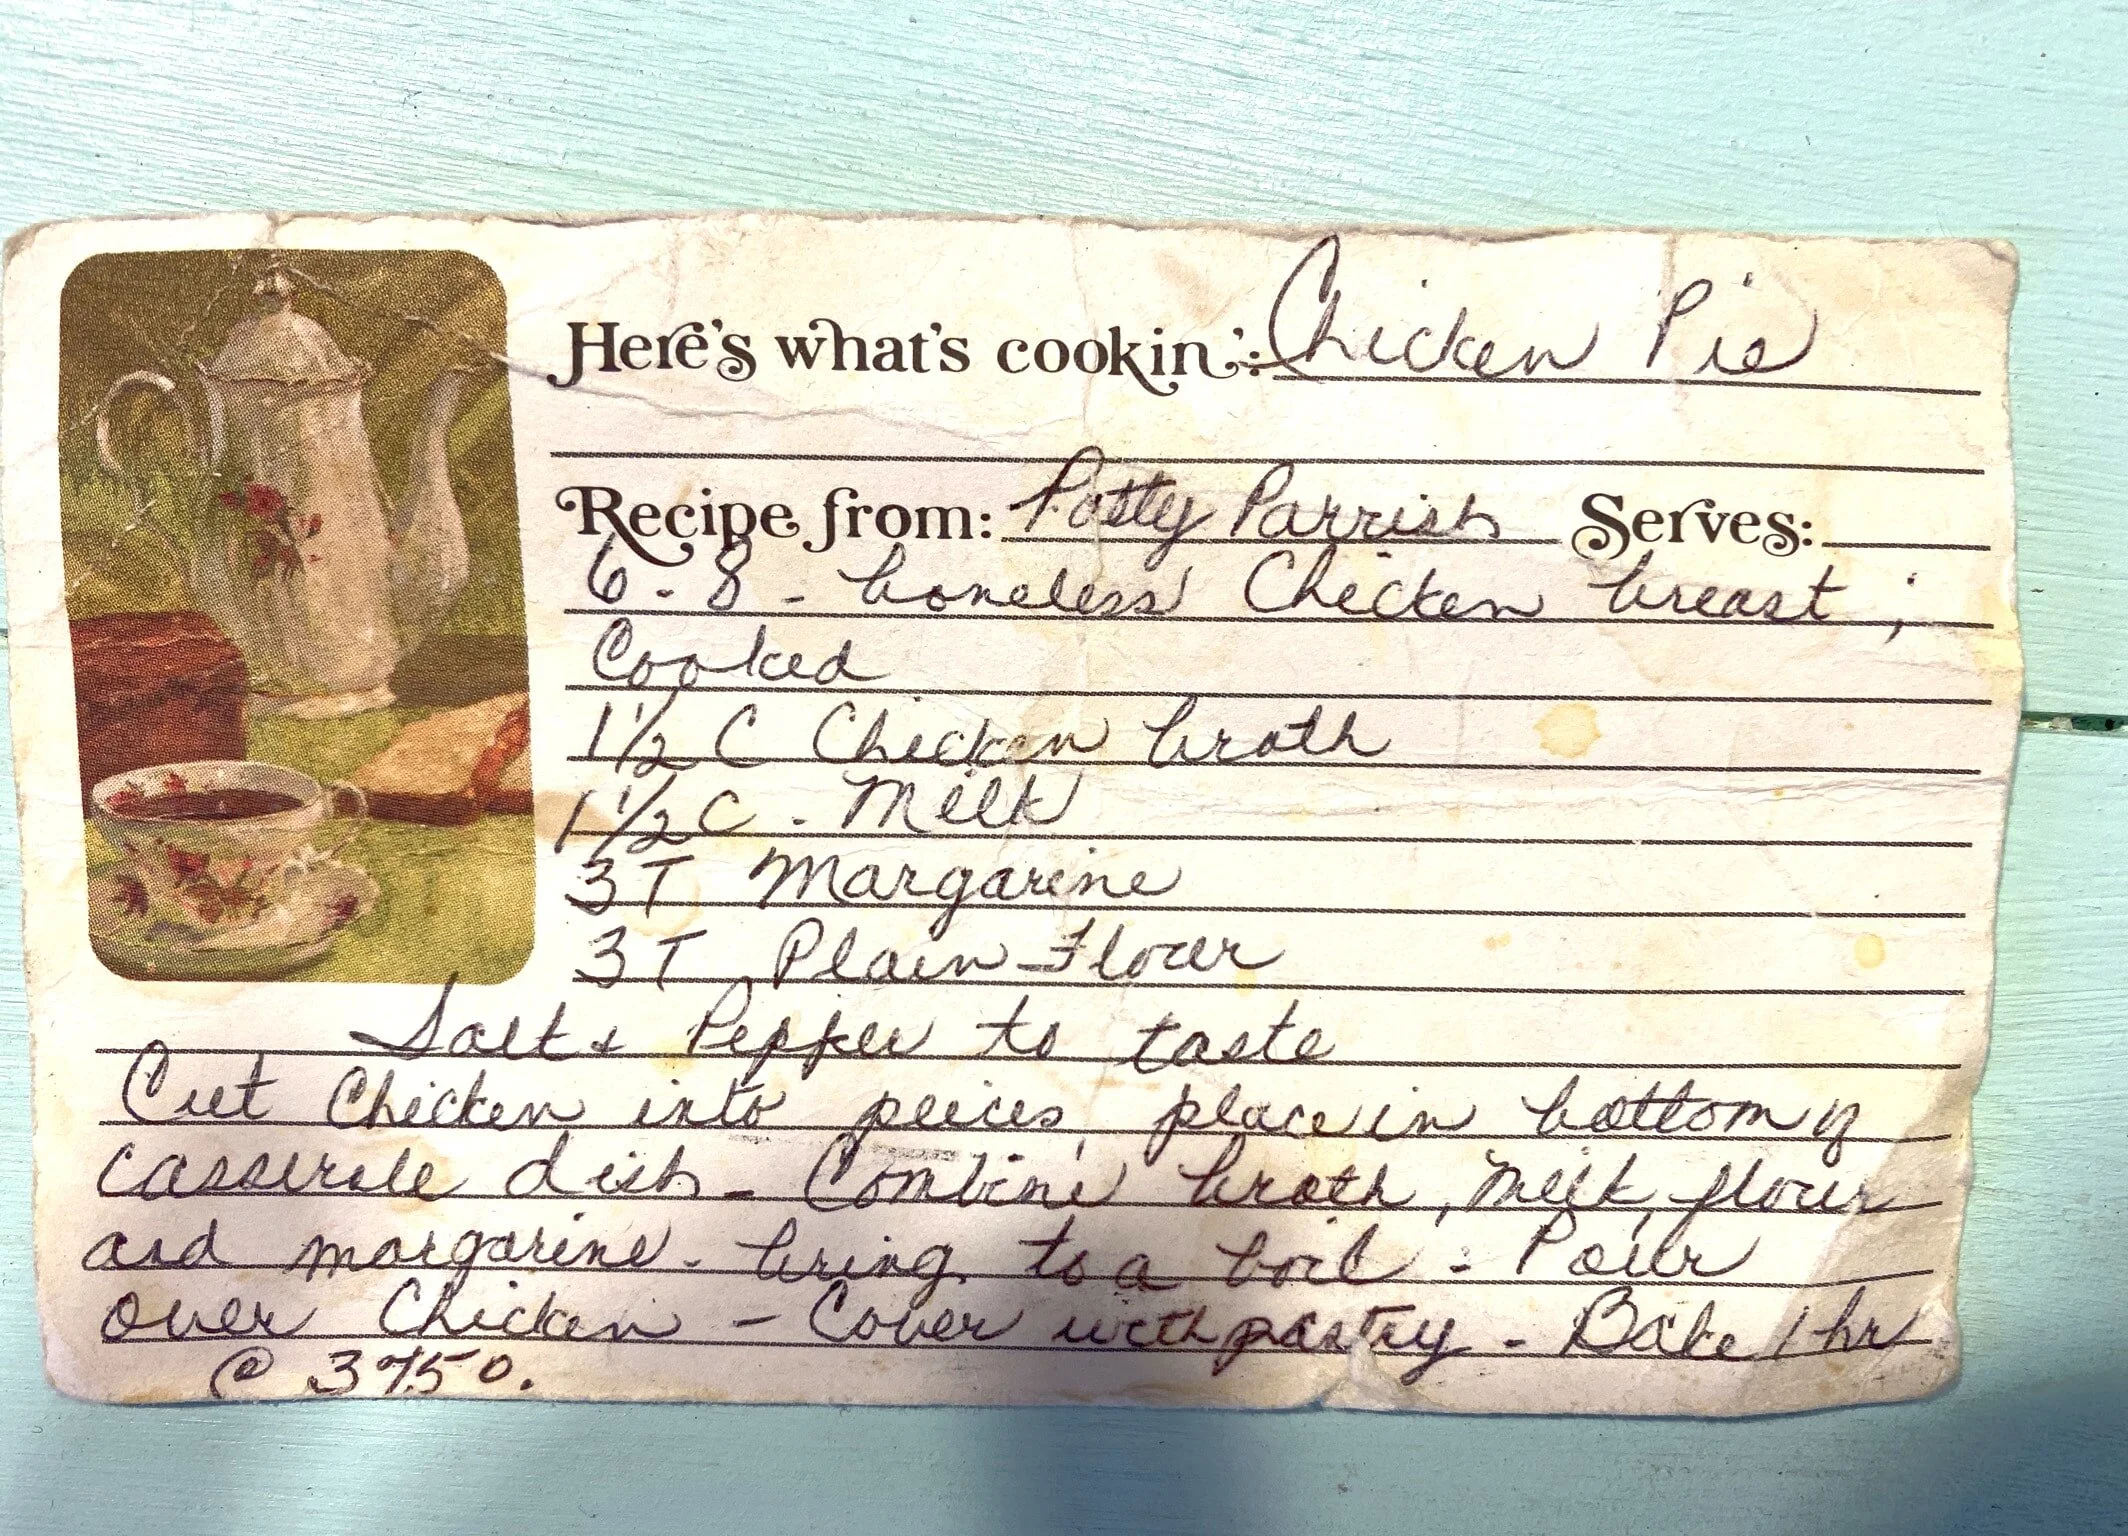 Here's what's cookin': Chicken Pie
Recipe from: Patty Parrish Serves:
6-8 - boneless Chicken breast;
Cooked
1 1/2 C Chicken broth
1 1/2 C - Milk
3 T Margarine
3 T Plain Flour
Salt & Pepper to taste
Cut Chicken into peices, place in bottom of
casserole dish - Combine broth, milk, flour
and margarine - bring to a boil - Pour
over Chicken - Cover with pastry - Bake 1 hr
@ 375°.